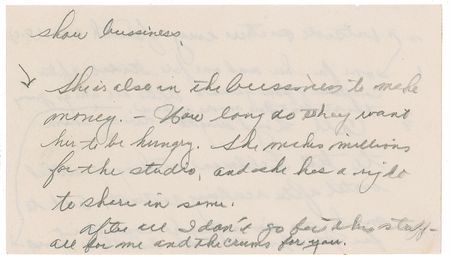 show bussiness.
She is also in the bussiness to make
money. – How long do they want
her to be hungry. She makes millions
for the studio, and she has a right
to share in some.
after all I don't go for this stuff –
all for me and the crums for you.